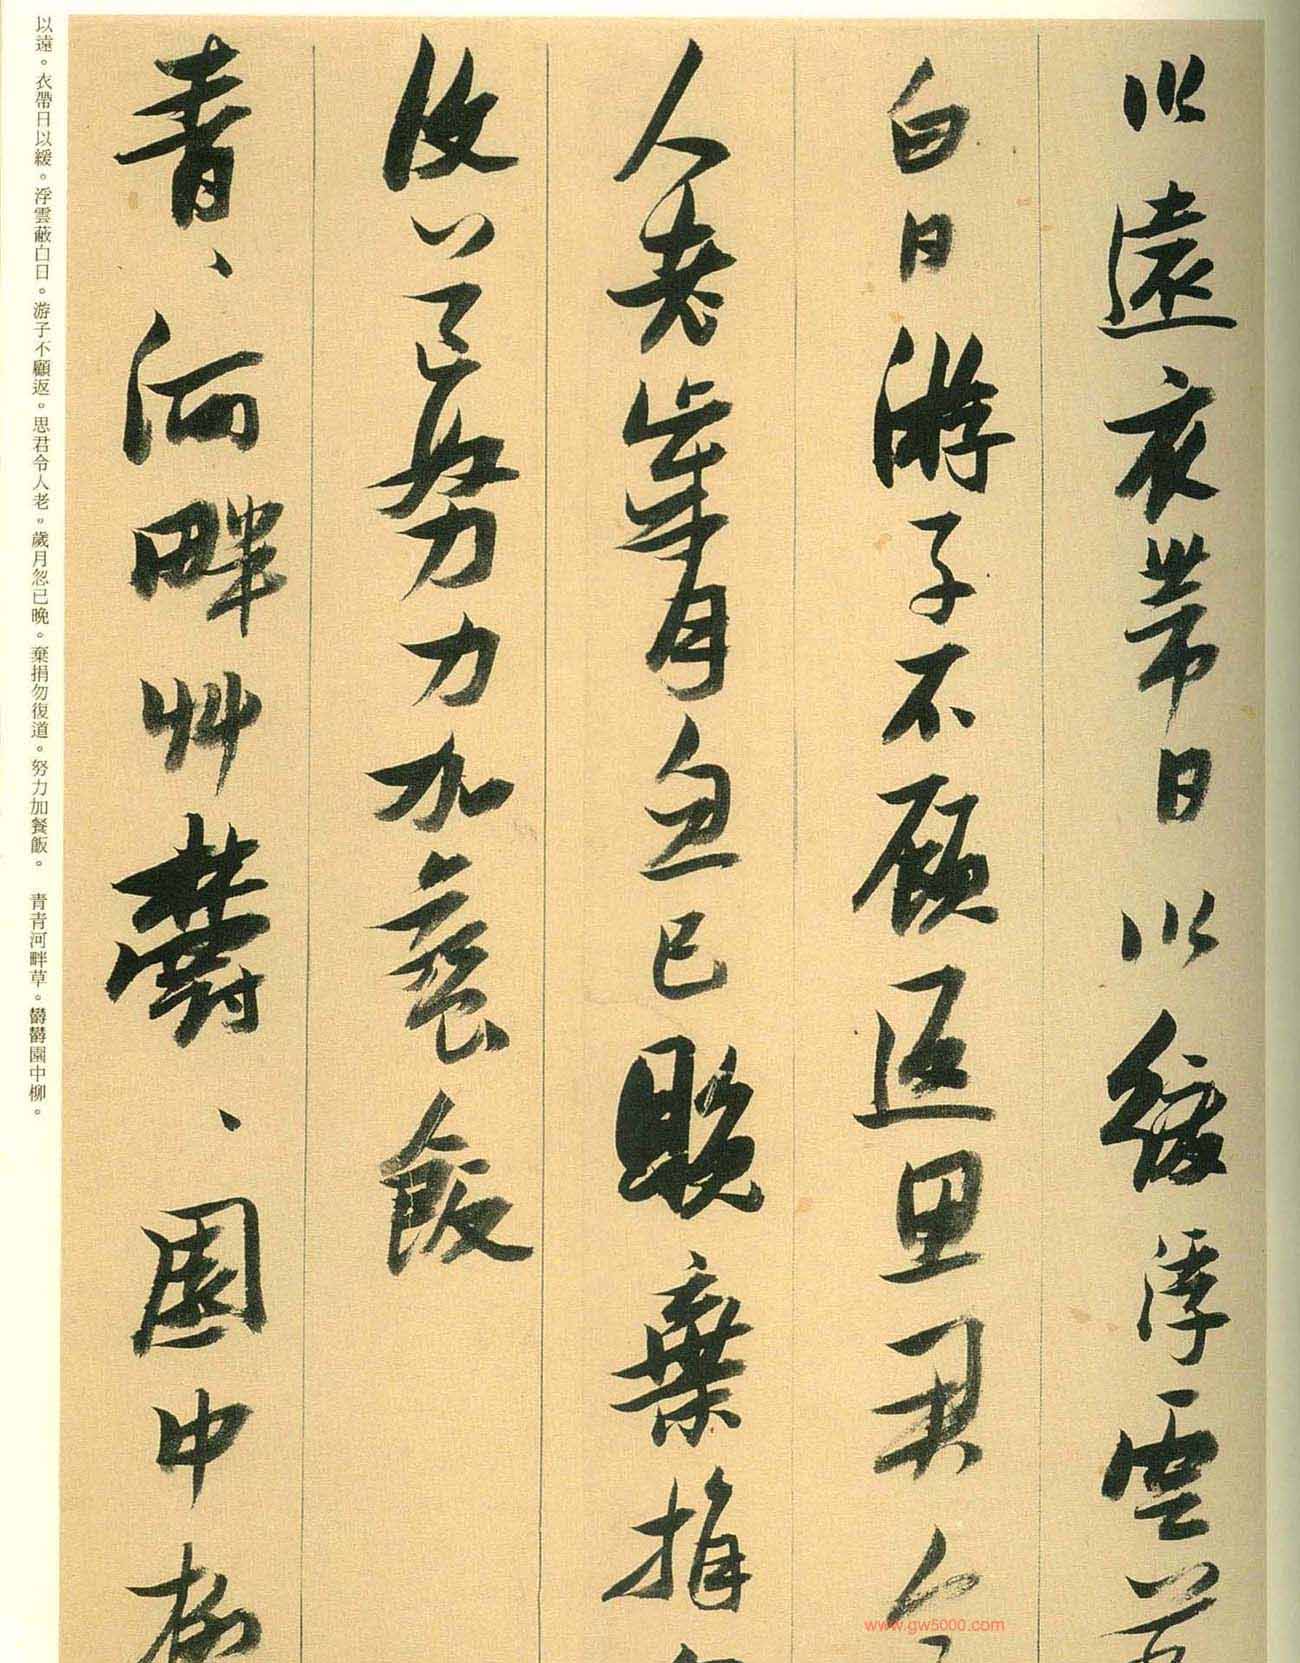 以遠衣帶日以緩浮雲蔽
白日游子不顧返思君令
人老歲月忽已晚棄捐勿
復道努力加餐飯
青、河畔草鬱、園中柳
以遠。衣帶日以緩。浮雲蔽白日。游子不顧返。思君令人老。歲月忽已晚。棄捐勿復道。努力加餐飯。 青青河畔草。鬱鬱園中柳。
www.gw5000.com